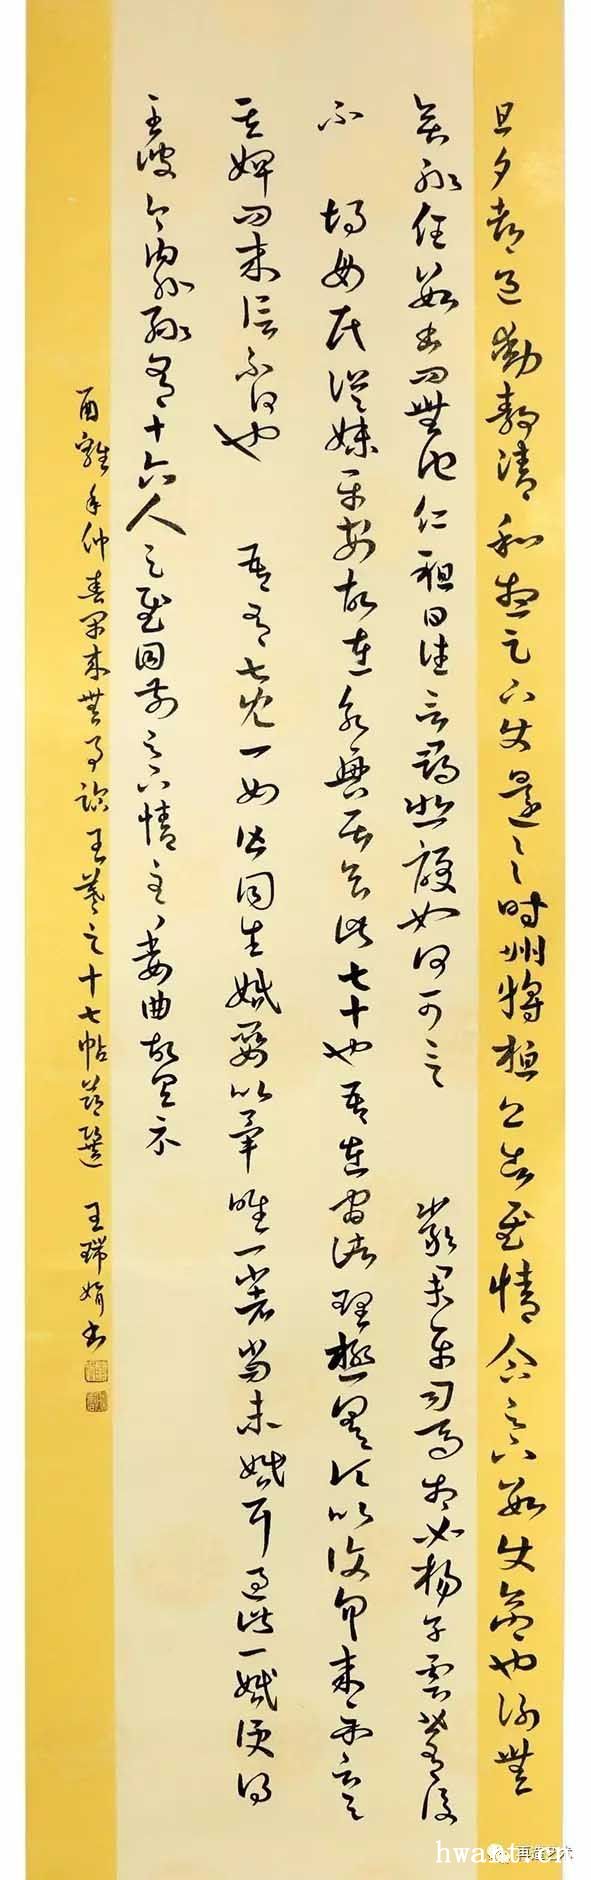 旦夕都邑動靜清和想足下使還一一時州將桓公告慰情企足下數使命也謝無
奕外任數書問無他仁祖日往言尋悲酸如何可言 嚴君平司馬相如楊子雲皆有後
不 胡母氏從妹平安故在永興居去此七十也吾在官諸理極差頃比復勿來示云與
其婢問來信不得也 吾有七兒一女皆同生婚娶以畢唯一小者尚未婚耳過此一婚便得
至彼今內外孫有十六人足慰目前足下情至委曲故具示
酉雞年仲春閑來無事臨王羲之十七帖節選 王瑞娟書
再造艺术